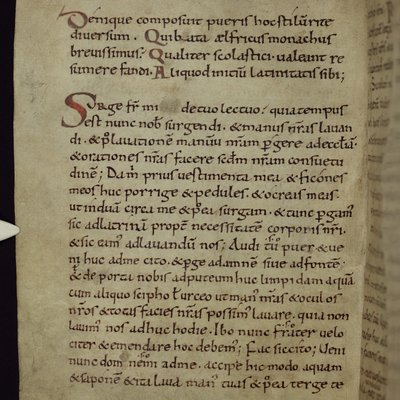 Deinque composuit pueris hoc stilū rite
diversum . Qui bata ælfricus monachus
brevissimus. Qualiter scolastici valeant re
sumere fandi. Aliquod initiū latinitatis sibi;
Surge fr̄ mi de tuo lectuo. quia tempus
est nunc nob̄ surgendi. & manus nr̄as lavan
di. & p̄ lavationē manuū nr̄am ꝑgere ad eccl̄iā
& orationes nr̄as facere scd̄m nr̄am consuetu
dinē; Dam̄ prius vestimenta mea & ficones
meos huc porrige & pedules. & ocreas meas.
ut induā circa me & p̄ea surgam. & tunc ꝑgam᷒
sic ad latrinā propt̄ necessitatē corporis nr̄i.
& sic eam᷒ ad lavandū nos; Audi tu puer & ve
ni huc ad me cito. & ꝑge ad amnē sive ad fontē.
& de porta nobis ad puteum huc limpidam aquā
cum aliquo scipho l̄ urceo ut man᷒ nr̄as & oculos
nr̄os & totas facies nr̄as possim᷒ lavare. quia non
lavim᷒ nos adhuc hodie. Ibo nunc frāter velo
citer & emendare hoc debem᷒; Fac sic cito; Veni
nunc dom̄ nem̄ ad me. accipe hic modo aquam
& saponē & ita lava man᷒ tuas & p̄ea terge te